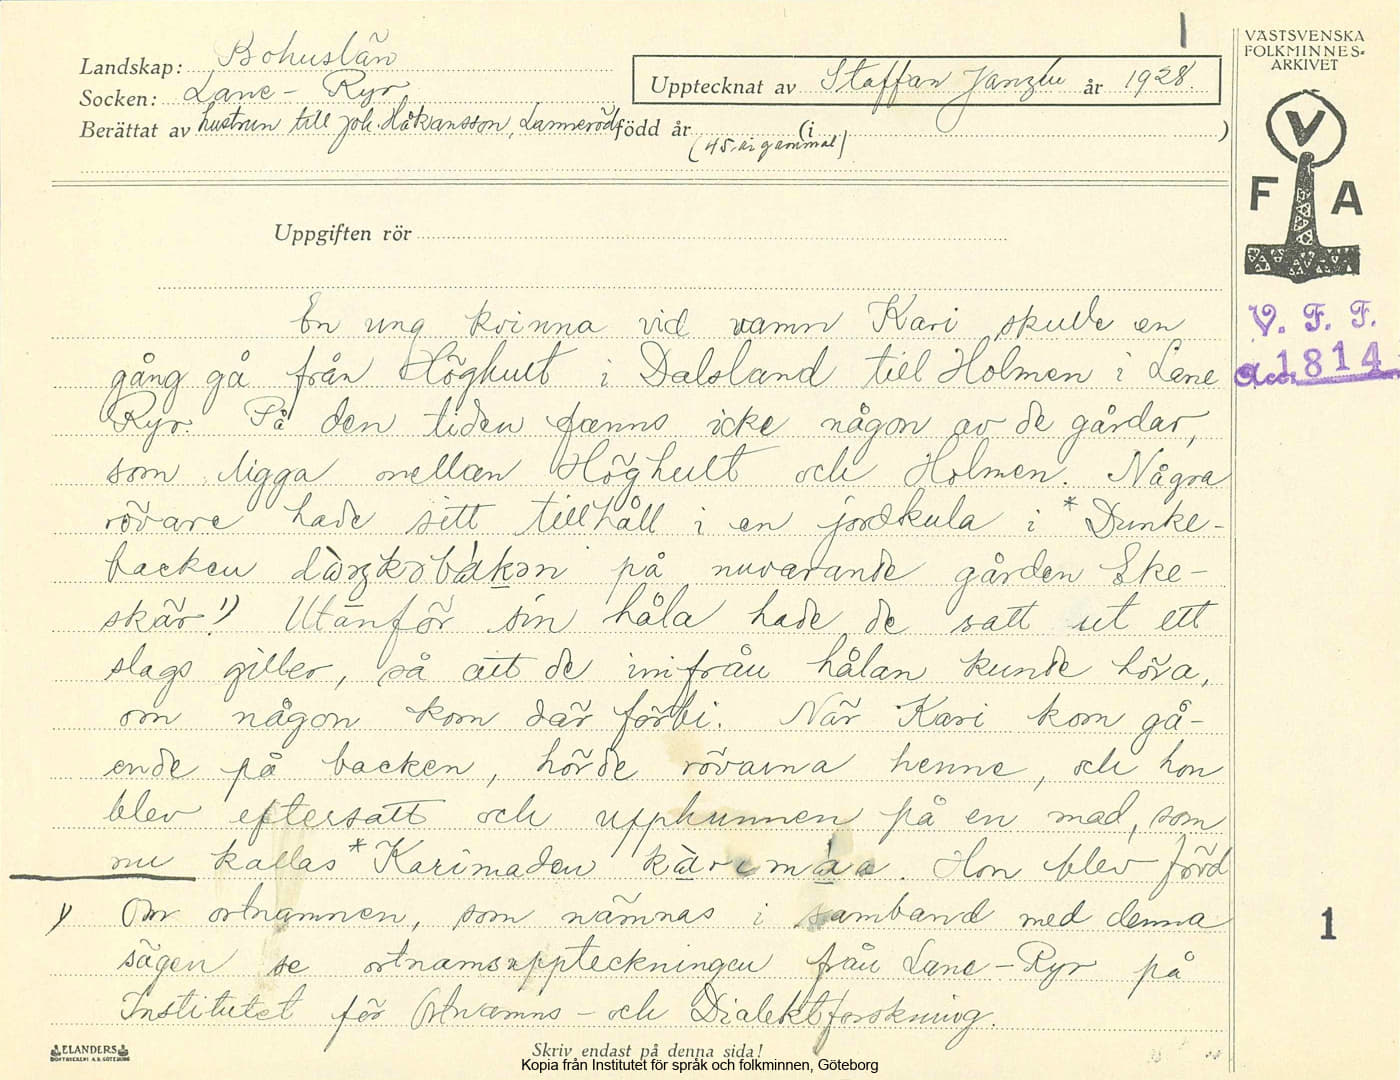 1
Landskap: Bohuslän
Socken: Lane-Ryr
Upptecknat av Staffan Janzén år 1928.
Berättat av hustrun till Joh. Håkansson, Lanneröd född år (i )
(45-årig gammal)
Uppgiften rör
VÄSTSVENSKA
FOLKMINNES-
ARKIVET
V
F A
V. F. F.
Acc. 1814
En ung kvinna vid namn Kari skulle en
gång gå från Höghult i Dalsland till Holmen i Lane
Ryr. På den tiden fanns icke någon av de gårdar,
som ligga mellan Höghult och Holmen. Några
rövare hade sitt tillhåll i en jordkula i *Dunke-
backen på nuvarande gården Eke-
skär.1) Utanför sin håla hade de satt ut ett
slags giller, så att de inifrån hålan kunde höra,
om någon kom där förbi. När Kari kom gå-
ende på backen, hörde rövarna henne, och hon
blev eftersatt och upphunnen på en mad, som
nu kallas *Karimaden. Hon blev förd
1) Om ortnamnen, som nämnas i samband med denna
sägen se ortnamsuppteckningen från Lane-Ryr på
Institutet för Ortnamns- och Dialektforskning.
1
ELANDERS
BOKTRYCKERI A.B. GÖTEBORG
Skriv endast på denna sida!
Kopia från Institutet för språk och folkminnen, Göteborg